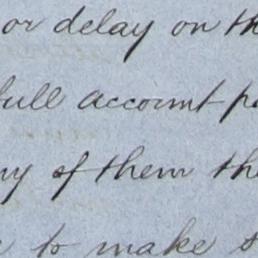 or delay on th
full account p
ny of them the
to make s